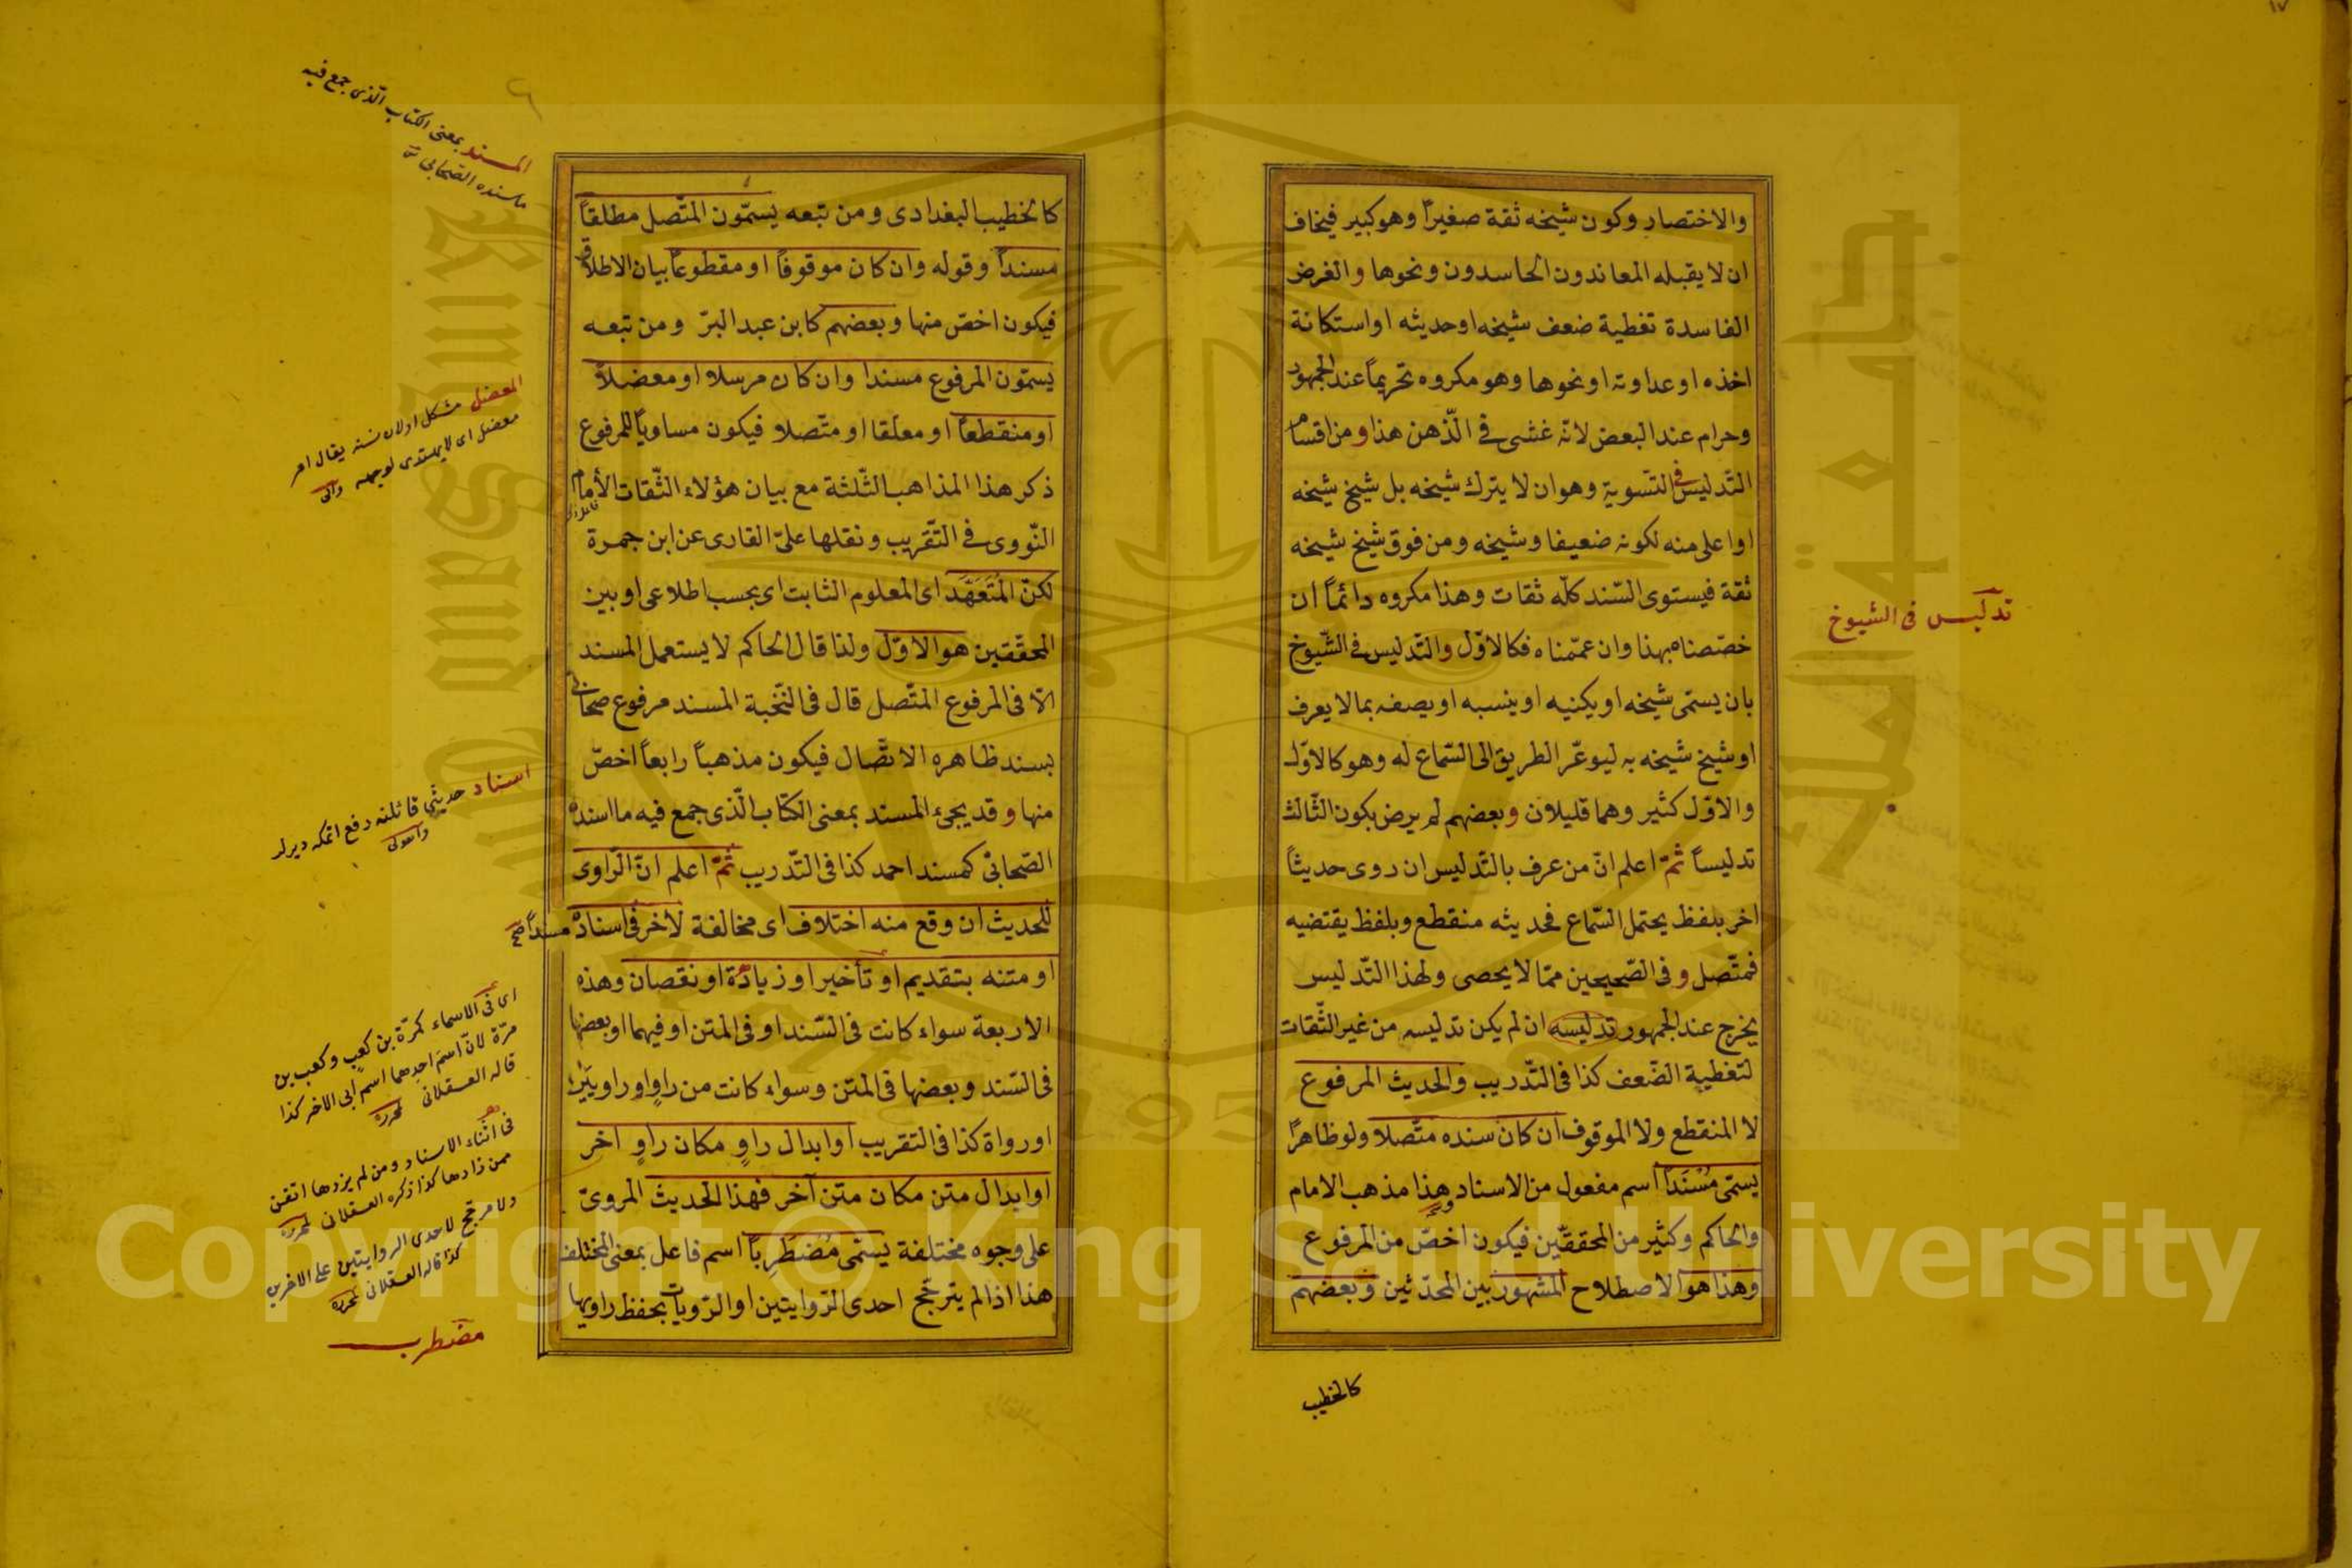 والاختصار وكون شيخه ثقة صغيراً وهو كبير فيخاف
ان لا يقبله المعاندون الحاسدون ونحوها والغرض
الفاسدة تغطية ضعف شيخه او حديثه او استكانة
اخذه او عداوته او نحوها وهو مكروه تحريماً عند الجمهور
وحرام عند البعض لانه غشى فى الذّهن هذا ومن اقسام
التّدليس فى التسوية وهو ان لا يترك شيخه بل شيخ شيخه
او اعلى منه لكونه ضعيفا وشيخه ومن فوق شيخ شيخه
ثقة فيستوى السّند كلّه ثقات وهذا مكروه دائماً ان
خصّصناه بهذا وان عمّمناه فكالاوّل والتّدليس فى الشّيوخ
بان يسمّى شيخه او يكنيه او ينسبه او يصفه بما لا يعرف
او شيخ شيخه به ليوعّر الطريق الى السّماع له وهو كالاوّل
والاوّل كثير وهما قليلان وبعضهم لم يرض بكون الثّالث
تدليساً ثمّ اعلم انّ من عرف بالتّدليس ان روى حديثاً
اخر بلفظ يحتمل السّماع فحديثه منقطع وبلفظ يقتضيه
فمتّصل وفى الصّحيحين ممّا لا يحصى ولهذا التّدليس
يخرج عند الجمهور تدليسه ان لم يكن تدليسه من غير الثّقات
لتغطية الضّعف كذا فى التّدريب والحديث المرفوع
لا المنقطع ولا الموقوف ان كان سنده متّصلا ولو ظاهراً
يسمّى مُسْنَداً اسم مفعول من الاسناد وهذا مذهب الامام
والحاكم وكثير من المحققّين فيكون اخصّ من المرفوع
وهذا هو الاصطلاح المشهور بين المحدّثين وبعضهم
كالخطيب
تدليس فى الشيوخ
كالخطيب البغدادى ومن تبعه يسمّون المتّصل مطلقاً
مسنداً وقوله وان كان موقوفاً او مقطوعاً بيان الاطلاق
فيكون اخصّ منها وبعضهم كابن عبد البرّ ومن تبعه
يسمّون المرفوع مسندا وان كان مرسلا او معضلاً
او منقطعاً او معلّقا او متّصلا فيكون مساوياً للمرفوع
ذكر هذا المذاهب الثّلثة مع بيان هؤلاء الثّقات الأمام
النّووى فى التّقريب ونقلها علىّ القارى عن ابن جمرة
لكنّ المُتَعَهَّد اى المعلوم الثابت اى بحسب اطلاعى او بين
المحقّقين هو الاوّل ولذا قال الحاكم لا يستعمل المسند
الّا فى المرفوع المتّصل قال فى النّخبة المسند مرفوع صحابى
بسند ظاهره الاتّصال فيكون مذهباً رابعاً اخصّ
منها وقد يجئ المسند بمعنى الكتاب الّذى جمع فيه ما اسنده
الصّحابىّ كمسند احمد كذا فى التّدريب ثمّ اعلم انّ الرّاوى
للحديث ان وقع منه اختلاف اى مخالفة لأخر فى اسناده مسنداً صح
او متنه بتقديم او تأخير او زيادة او نقصان وهذه
الاربعة سواء كانت فى السّند او فى المتن او فيهما او بعضها
فى السّند وبعضها فى المتن وسواء كانت من راوٍ او راويين
او رواة كذا فى التقريب او ابدال راوٍ مكان راوٍ اخر
او ابدال متن مكان متن آخر فهذا الحديث المروىّ
على وجوه مختلفة يسمّى مُضْطَرِباً اسم فاعل بمعنى المختلف
هذا اذا لم يترجّح احدى الرّوايتين او الرّويات بحفظ راويها
المسند بمعنى الكتاب الّذى جمع فيه
ما سنده الصّحابى
المعضل مشكل اولان نسنه يقال امر
معضل اى لا يهتدى لوجهه وانى
اسناد حديثى قائلنه رفع اتمكه ديرلر
اى فى الاسماء كمرّة بن كعب وكعب بن
مرّة لانّ اسم احدهما اسم ابى الاخر كذا
قاله العسقلانى لمحرره
فى اثناء الاسناد ومن لم يزدها اتقن
ممن زادها كذا ذكره العسقلانى لمحرره
ولا مرجّح لاحدى الروايتين على الاخرى
كذا قاله العسقلانى لمحرره
مضطرب
Copyright © King Saud University
King Saud University
جامعة الملك سعود